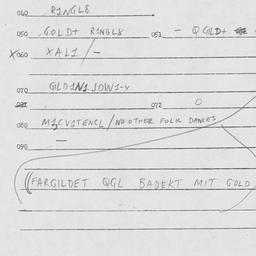 040 RINGL8
050 GOLD+ R1NGL8 051 - QGILD+
X060 XAL1/-
070 GILD1N1 JOW1-X
072 0
080 M1CV1TENCL/NO OTHER FOLK DANCES
090 -
((FARGILDET QGL BADEKT MIT GOLD